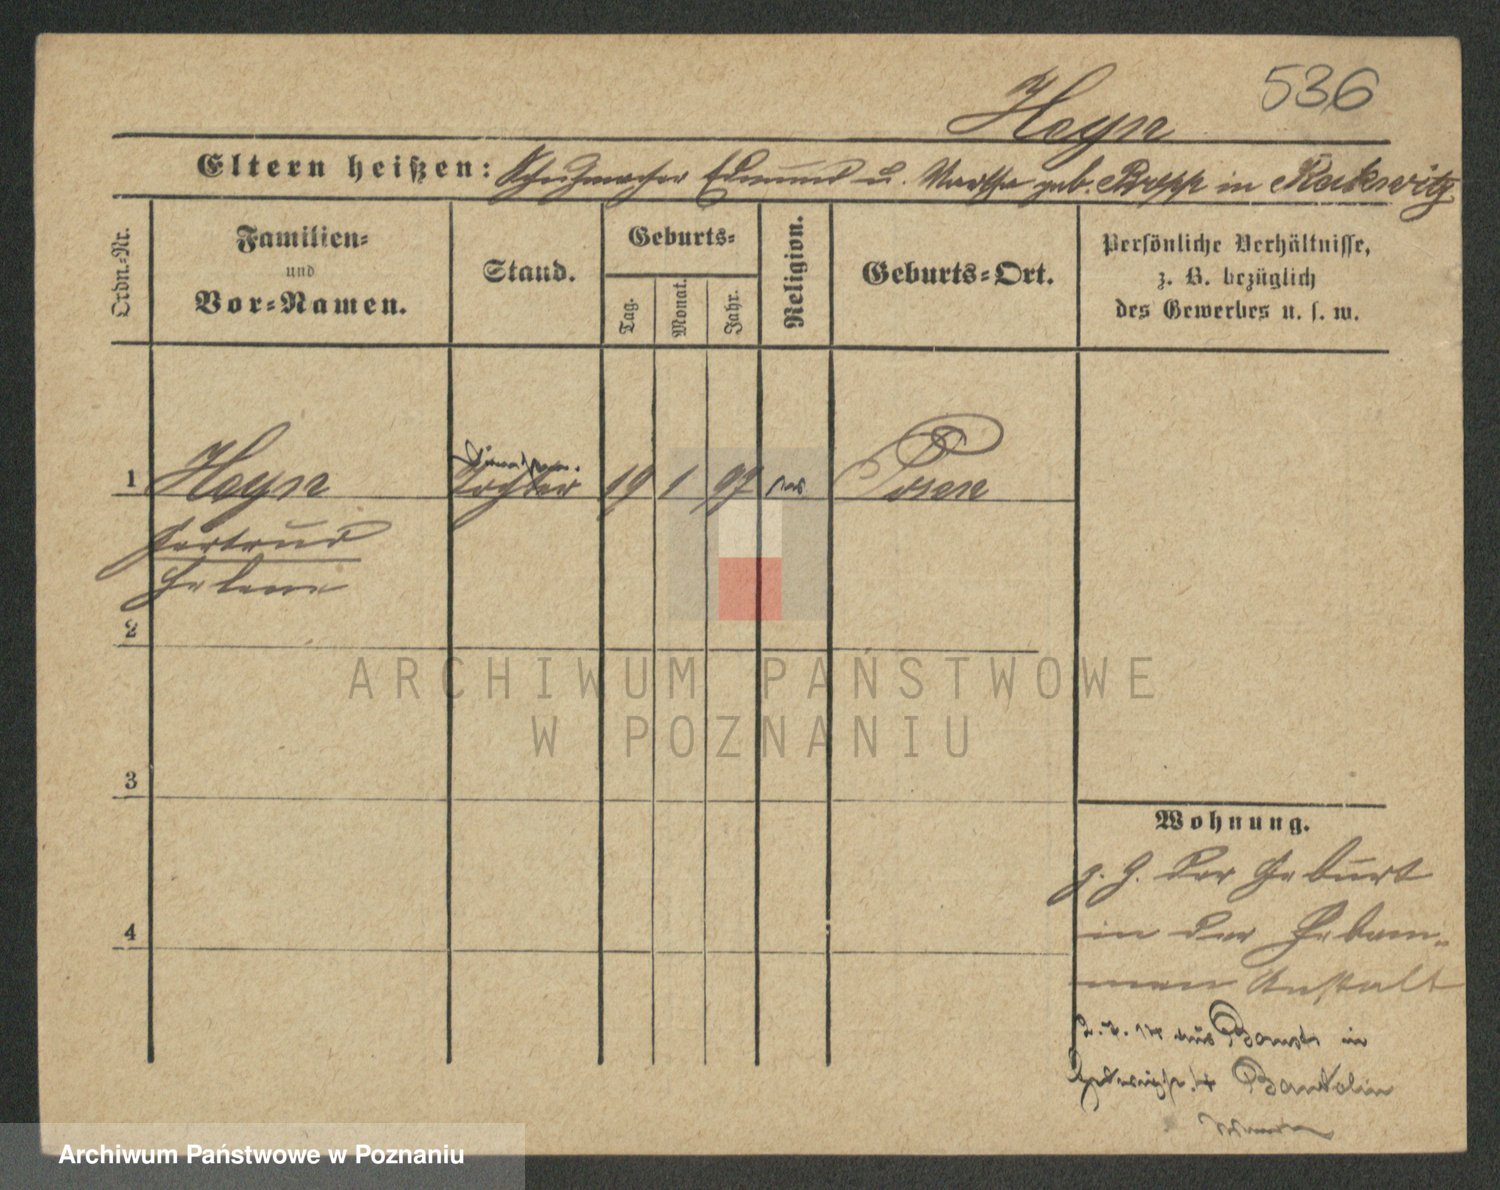 536
Heyn
Eltern heißen: Schuhmacher Edmund u. Martha geb. Propp in Rakwitz
Ordn.-Nr.
Familien-
und
Vor-Namen.
Stand.
Geburts-
Tag.
Monat.
Jahr.
Religion.
Geburts-Ort.
Persönliche Verhältnisse,
z. B. bezüglich
des Gewerbes u. s. w.
1 Heyn Tochter 19 1 97 Posen
Gertrud
Helene
2
3
4
Wohnung.
z. Z. der Geburt
in der Hebam-
men Anstalt
aus Bomst in
ARCHIWUM PAŃSTWOWE
W POZNANIU
Archiwum Państwowe w Poznaniu